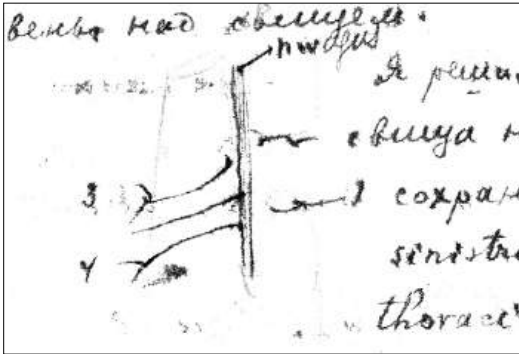 вень над свищем.
Я реши
свища н
3
1 сохран
4
sinistr
thoraci